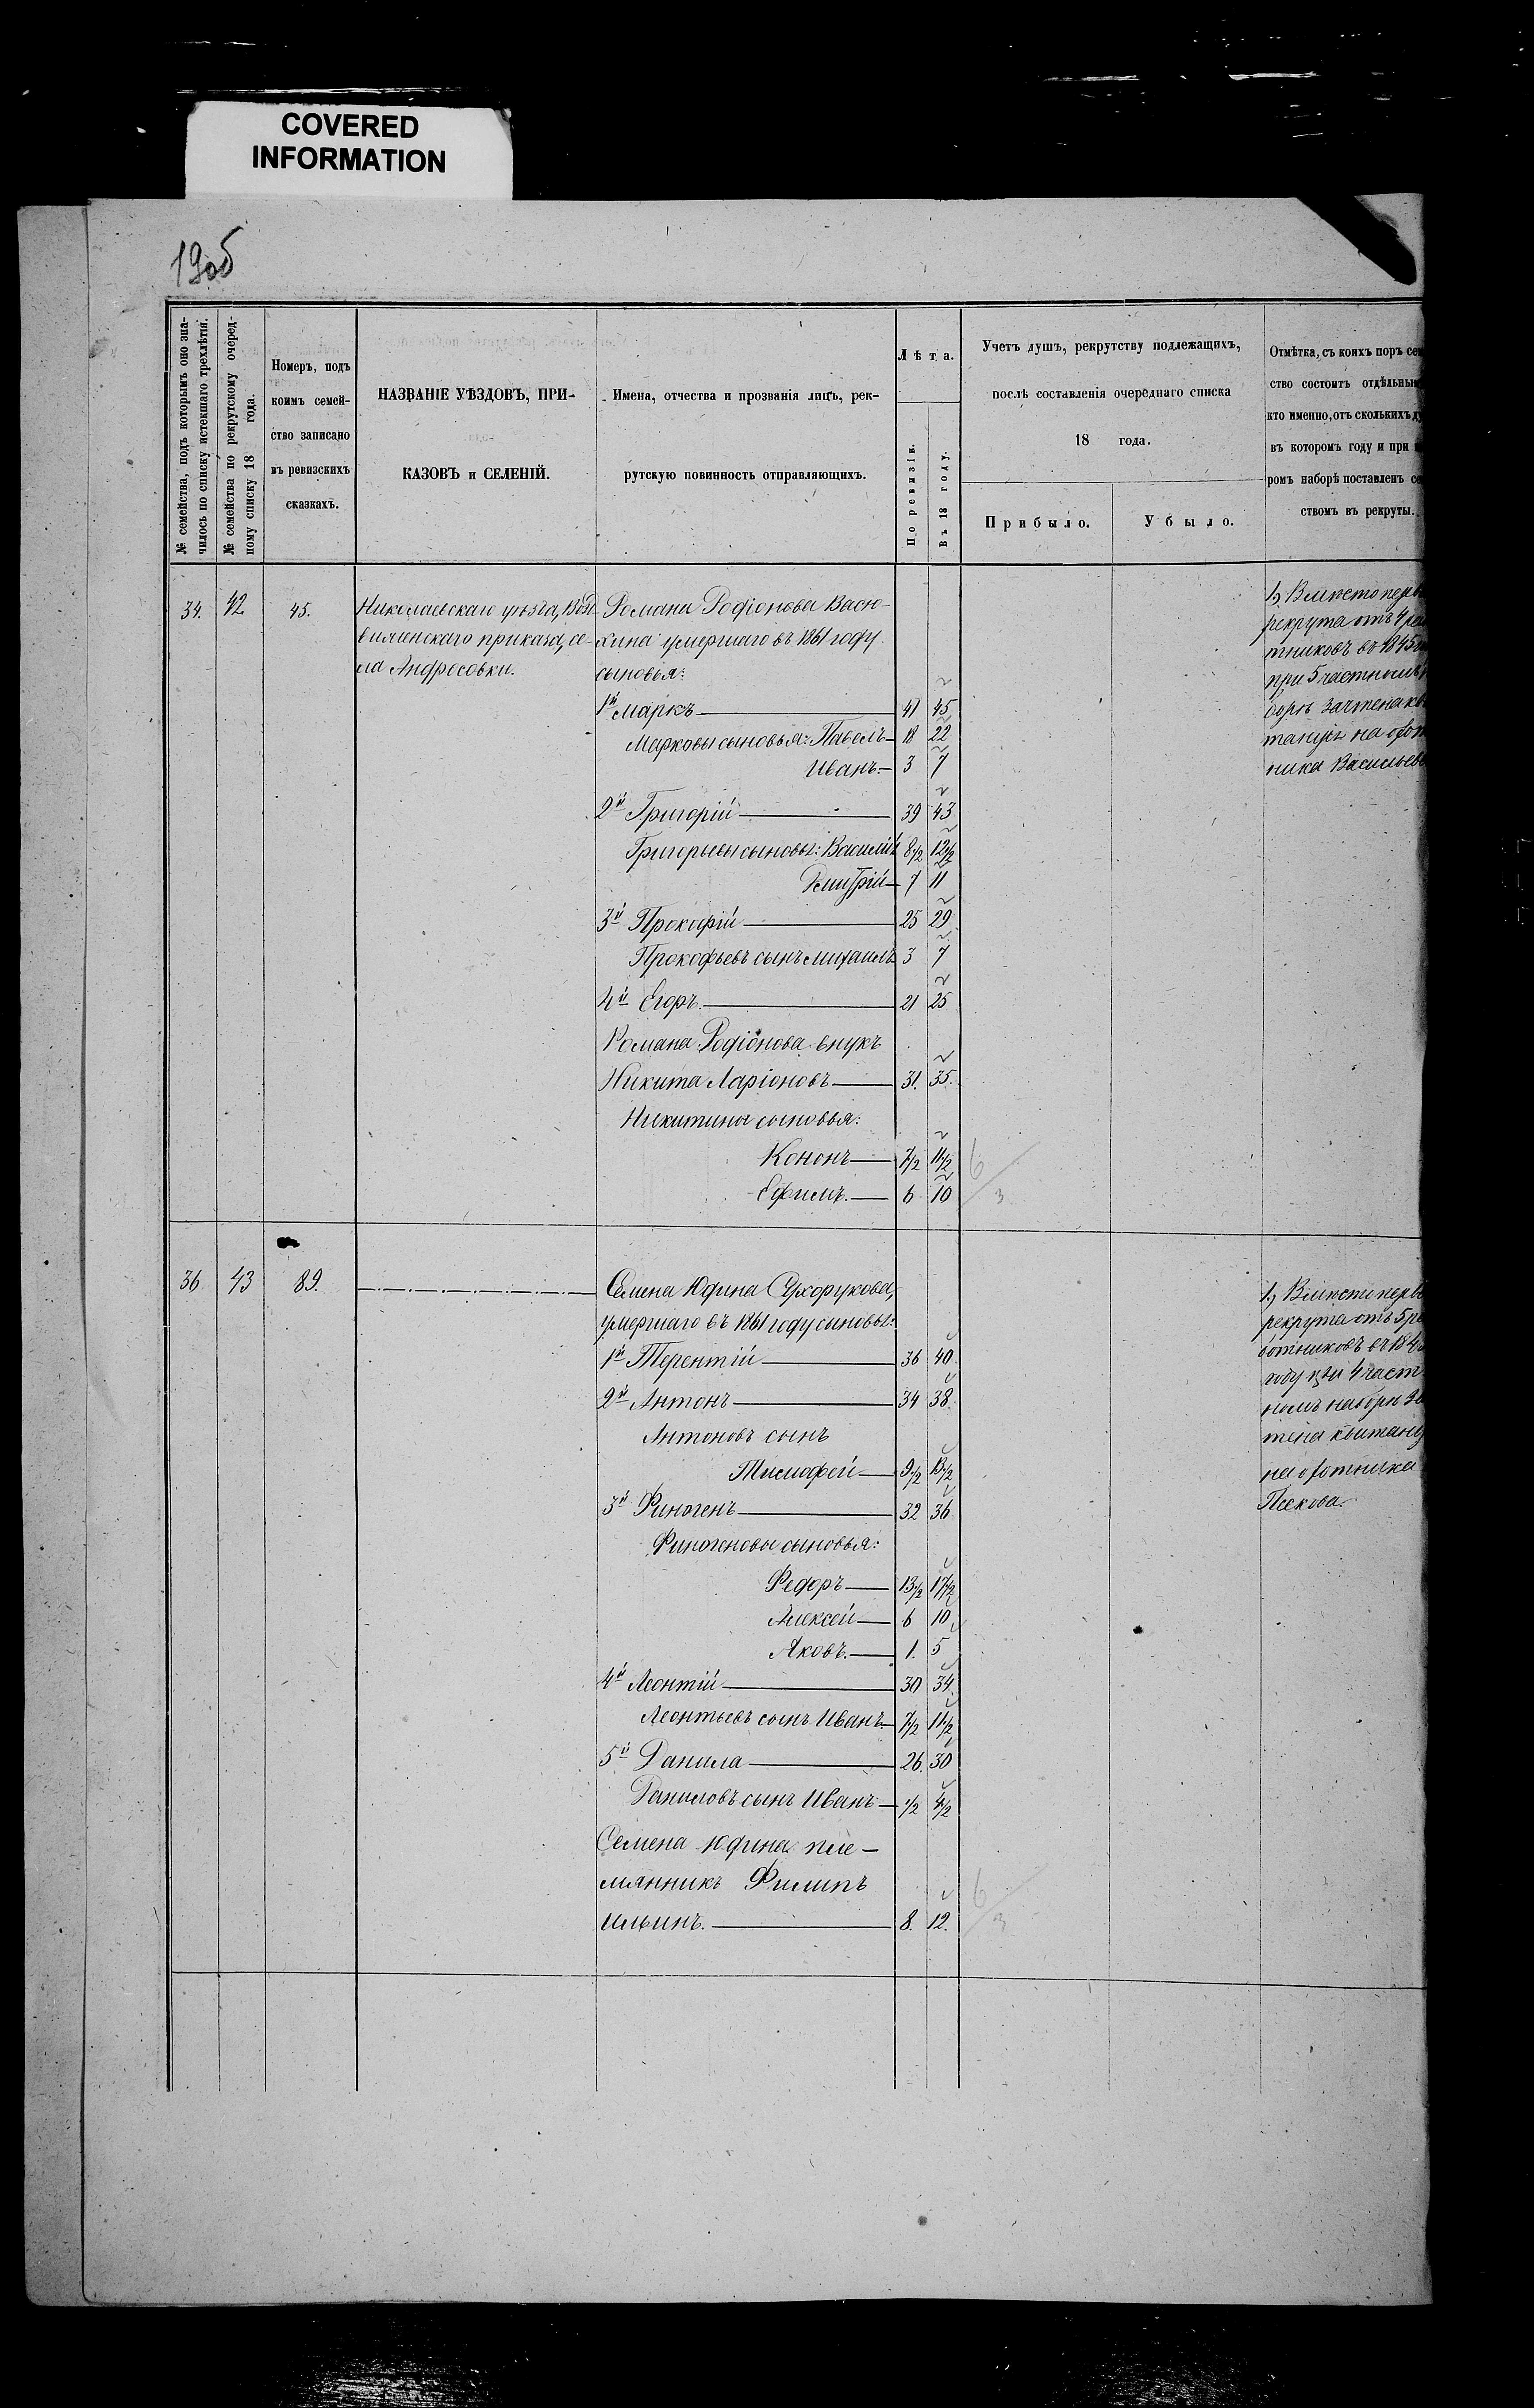 COVERED
INFORMATION
19об
№ семейства, подъ которымъ оно зна-
чилось по списку истекшаго трехлѣтія.
№ семейства по рекрутскому очеред-
ному списку 18 года.
Номеръ, подъ
коимъ семей-
ство записано
въ ревизскихъ
сказкахъ.
НАЗВАНІЕ УѢЗДОВЪ, ПРИ-
КАЗОВЪ и СЕЛЕНІЙ.
Имена, отчества и прозванія лицъ, рек-
рутскую повинность отправляющихъ.
Лѣта.
По ревизіи.
Въ 18 году.
Учетъ душъ, рекрутству подлежащихъ,
послѣ составленія очереднаго списка
18 года.
Прибыло.
Убыло.
Отмѣтка, съ коихъ поръ сем
ство состоитъ отдѣльным
кто именно, отъ сколькихъ ду
въ которомъ году и при
ромъ наборѣ поставленъ се
ствомъ въ рекруты.
34. 42 45.
Николаевскаго уѣзда,
приказа, се-
ла Андросовки.
Романа Родіонова Васю-
хина умершаго въ 1861 году
сыновья:
1й Маркъ 41 45
Марковы сыновья: Павелъ 18 22
Иванъ 3 7
2й Григорій 39 43
Григорьевы сыновья: Василій 8 1/2 12 1/2
Дмитрій 7 11
3й Прокофій 25 29
Прокофьевъ сынъ Михаилъ 3 7
4й Егоръ. 21 25
Романа Родіонова внукъ
Никита Ларіоновъ 31. 35.
Никитины сыновья:
Кононъ 7 1/2 11 1/2
Ефимъ. 6 10
6/3
1, Вмѣсто перв
рекрута отъ 4 ра
тниковъ въ 1845
при 5 частномъ
борѣ зачтена кв
танція на охот
ника Васильев
36 43 89.
Семена Юдина Сухорукова,
умершаго въ 1861 году сыновья:
1й Терентій 36 40
2й Антонъ 34 38.
Антоновъ сынъ
Тимофей 9 1/2 13 1/2
3й Финогенъ 32 36
Финогеновы сыновья:
Федоръ 13 1/2 17 1/2
Алексей 6 10
Яковъ. 1. 5
4й Леонтій 30 34.
Леонтьевъ сынъ Иванъ 7 1/2 11 1/2
5й Данила 26. 30
Даниловъ сынъ Иванъ 1/2 4 1/2
Семена Юдина пле-
мянникъ Филипъ
Ильинъ. 8. 12.
6/3
1, Вмѣсто перв
рекрута отъ 5 ра
ботниковъ въ 184
году при 4 част
номъ наборѣ за
тена квитанц
на охотника
Пескова.